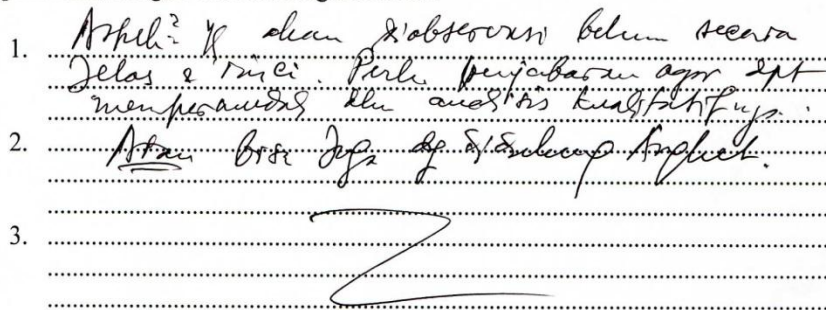 1. Aspek² yg akan diobservasi belum secara
Jelas & rinci. Perlu penjabaran agar dpt
mempermudah dlm analisis kualitatifnya.
2. Atau bisa juga dg didukung Angket.
3.